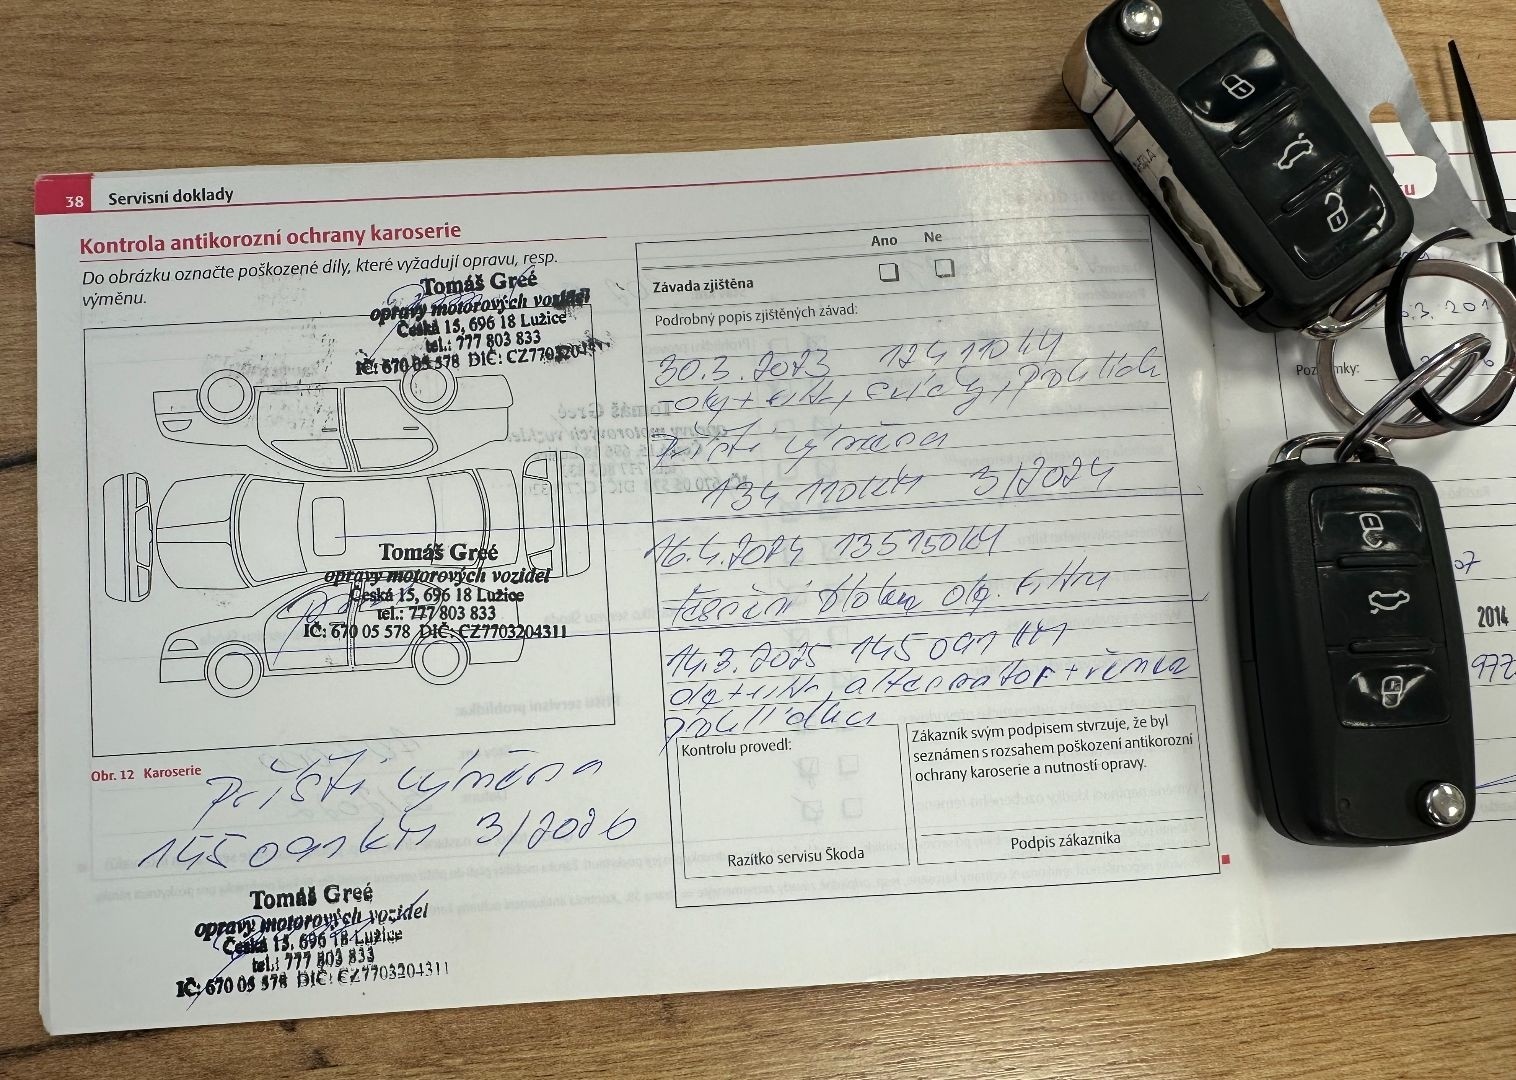 38 Servisní doklady
Kontrola antikorozní ochrany karoserie
Do obrázku označte poškozené díly, které vyžadují opravu, resp.
výměnu.
Tomáš Greé
opravy motorových vozidel
Česká 15, 696 18 Lužice
tel.: 777 803 833
IČ: 670 05 578 DIČ: CZ7703204311
Tomáš Greé
opravy motorových vozidel
Česká 15, 696 18 Lužice
tel.: 777 803 833
IČ: 670 05 578 DIČ: CZ7703204311
Obr. 12 Karoserie
Příští výměna
145 091 KM 3/2026
Tomáš Greé
opravy motorových vozidel
Česká 15, 696 18 Lužice
tel.: 777 803 833
IČ: 670 05 578 DIČ: CZ7703204311
Ano Ne
Závada zjištěna
Podrobný popis zjištěných závad:
30.3.2023 124 110 KM
Příští výměna
134 110 KM 3/2024
16.4.2024 135150 KM
olej. filtru
14.3.2025 145 091 KM
alternator + řemen
Kontrolu provedl:
Razítko servisu Škoda
Zákazník svým podpisem stvrzuje, že byl
seznámen s rozsahem poškození antikorozní
ochrany karoserie a nutností opravy.
Podpis zákazníka
2014